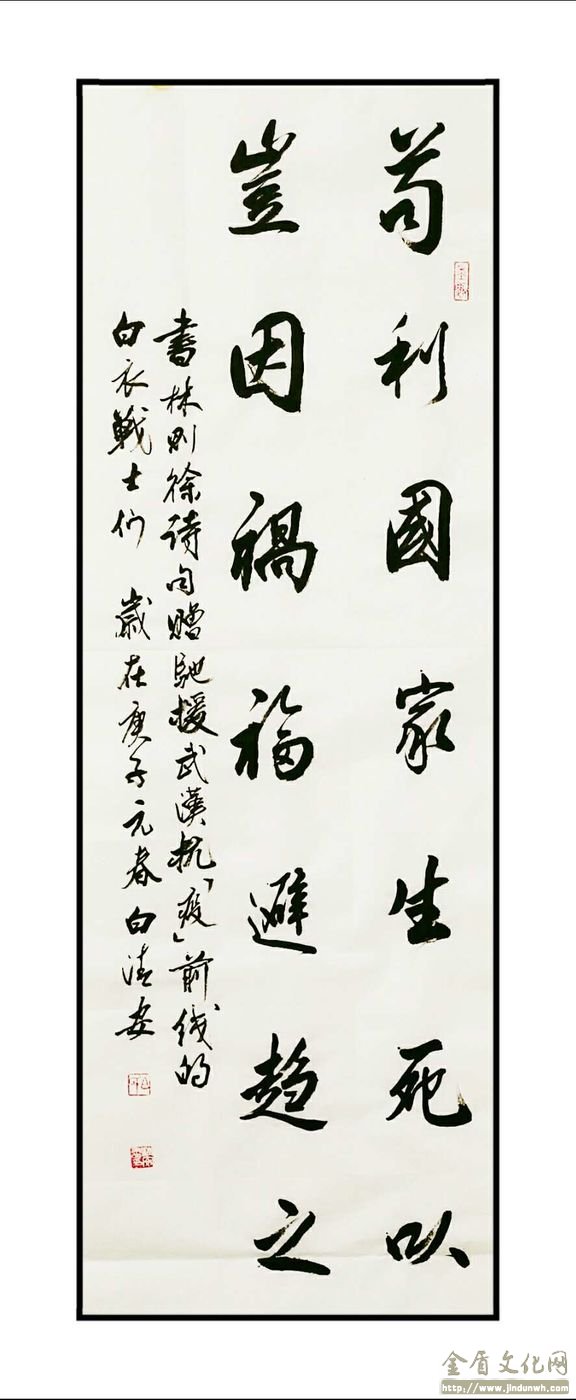 苟利國家生死以
豈因禍福避趨之
書林则徐詩句贈馳援武漢抗「疫」前线的
白衣戰士们 歲在庚子元春白清安
金盾文化网
http://www.jindunwh.com